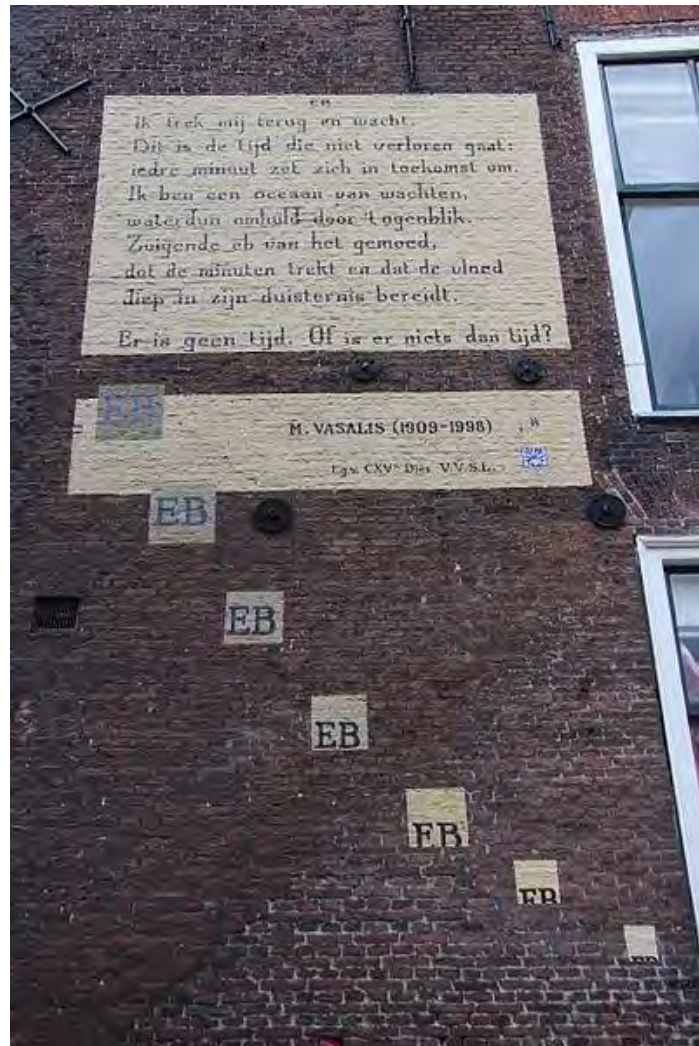 EB
ik trek mij terug en wacht.
Dit is de tijd die niet verloren gaat:
iedre minuut zet zich in toekomst om.
Ik ben een oceaan van wachten,
waterdun omhuld door 't ogenblik.
Zuigende eb van het gemoed,
dat de minuten trekt en dat de vloed
diep in zijn duisternis bereidt.
Er is geen tijd. Of is er niets dan tijd?
EB
M. VASALIS (1909-1998)
t.g.v. CXVe Dies V.V.S.L.
EB
EB
EB
EB
EB
EB